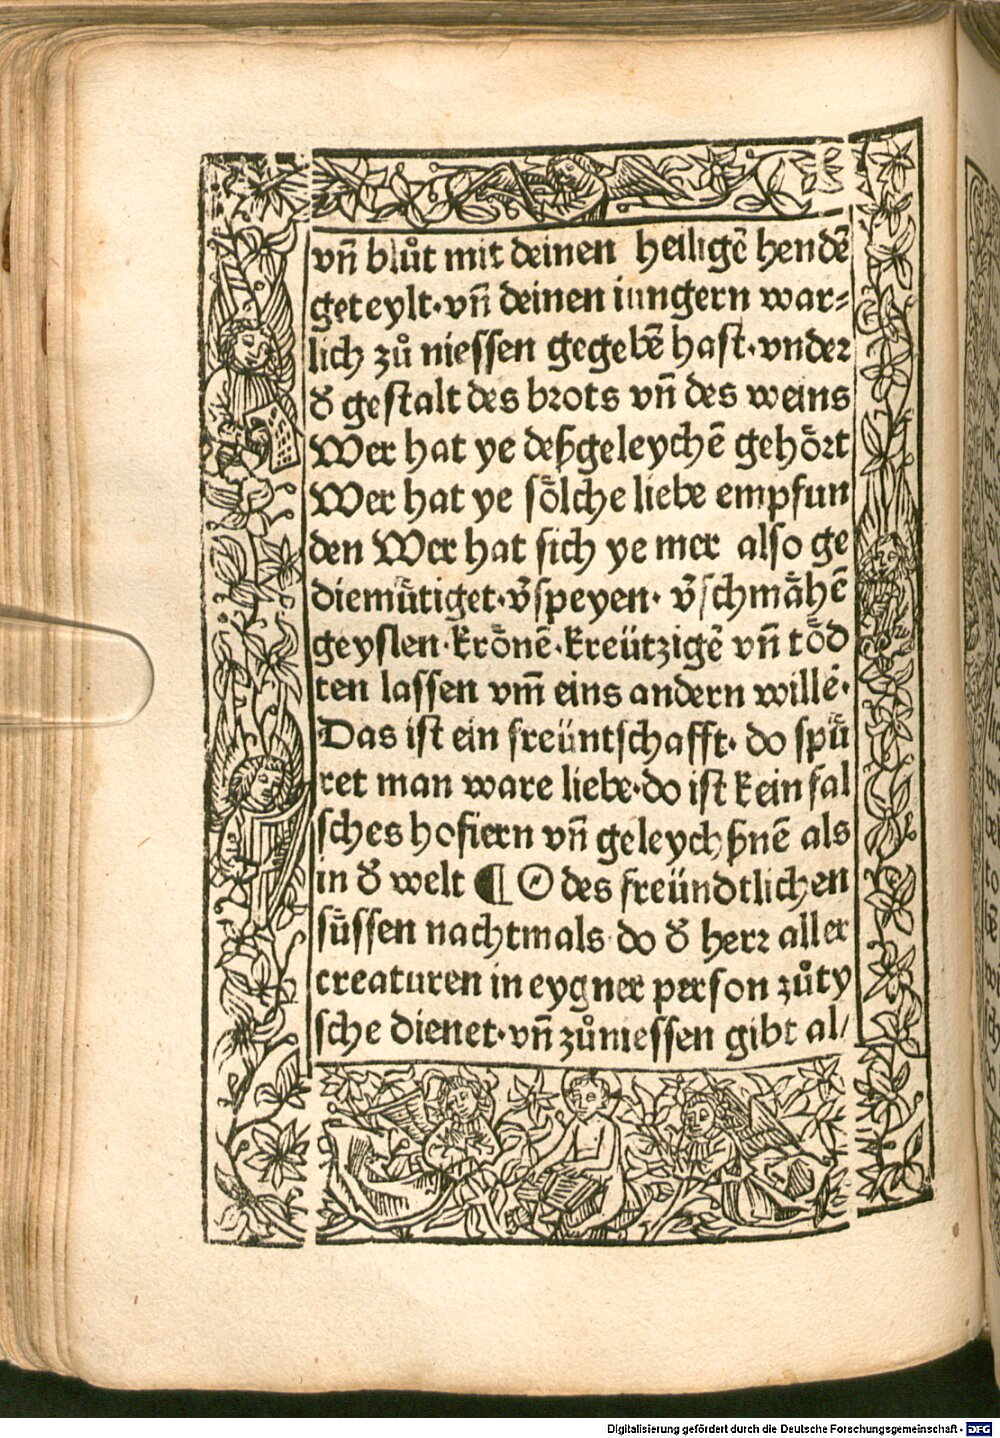 vn̄ blůt mit deinen heiligē hendē
geteylt·vn̄ deinen iungern war⸗
lich zů niessen gegebē hast·vnder
d̕ gestalt des brots vn̄ des weins
Wer hat ye deßgeleychē gehoͤrt
Wer hat ye soͤlche liebe empfun
den Wer hat sich ye mer also ge
diemuͤtiget·v̄speyen·v̄schmaͤhē
geyslen·kroͤnē·kreützigē vn̄ toͤd
ten lassen vm̄ eins andern willē·
Das ist ein freüntschafft·do spuͤ
ret man ware liebe·do ist kein fal
sches hofiern vn̄ geleychßnē als
in d̕ welt ¶ O des freündtlichen
suͤssen nachtmals do d̕ herr aller
creaturen in eygner person zůty
sche dienet·vn̄ zůniessen gibt al/
Digitalisierung gefördert durch die Deutsche Forschungsgemeinschaft - DFG